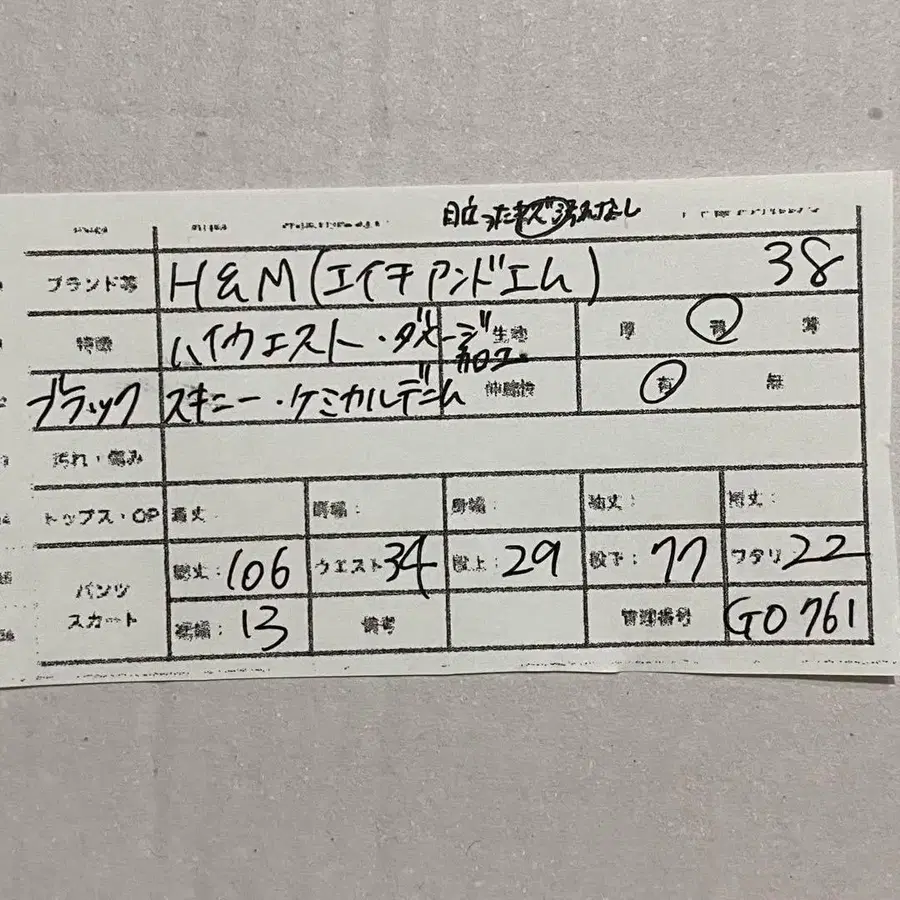 目立ったキズ汚れなし
ブランド等 H&M(エイチアンドエム) 38
特徴 ハイウエスト・ダメージ加工 生地 厚 普 薄
ブラック スキニー・ケミカルデニム 伸縮性 有 無
汚れ・傷み
トップス・OP 着丈: 肩幅: 身幅: 袖丈: 裄丈:
パンツ スカート 総丈:106 ウエスト34 股上:29 股下:77 ワタリ22
裾幅:13 備考 管理番号 GO761